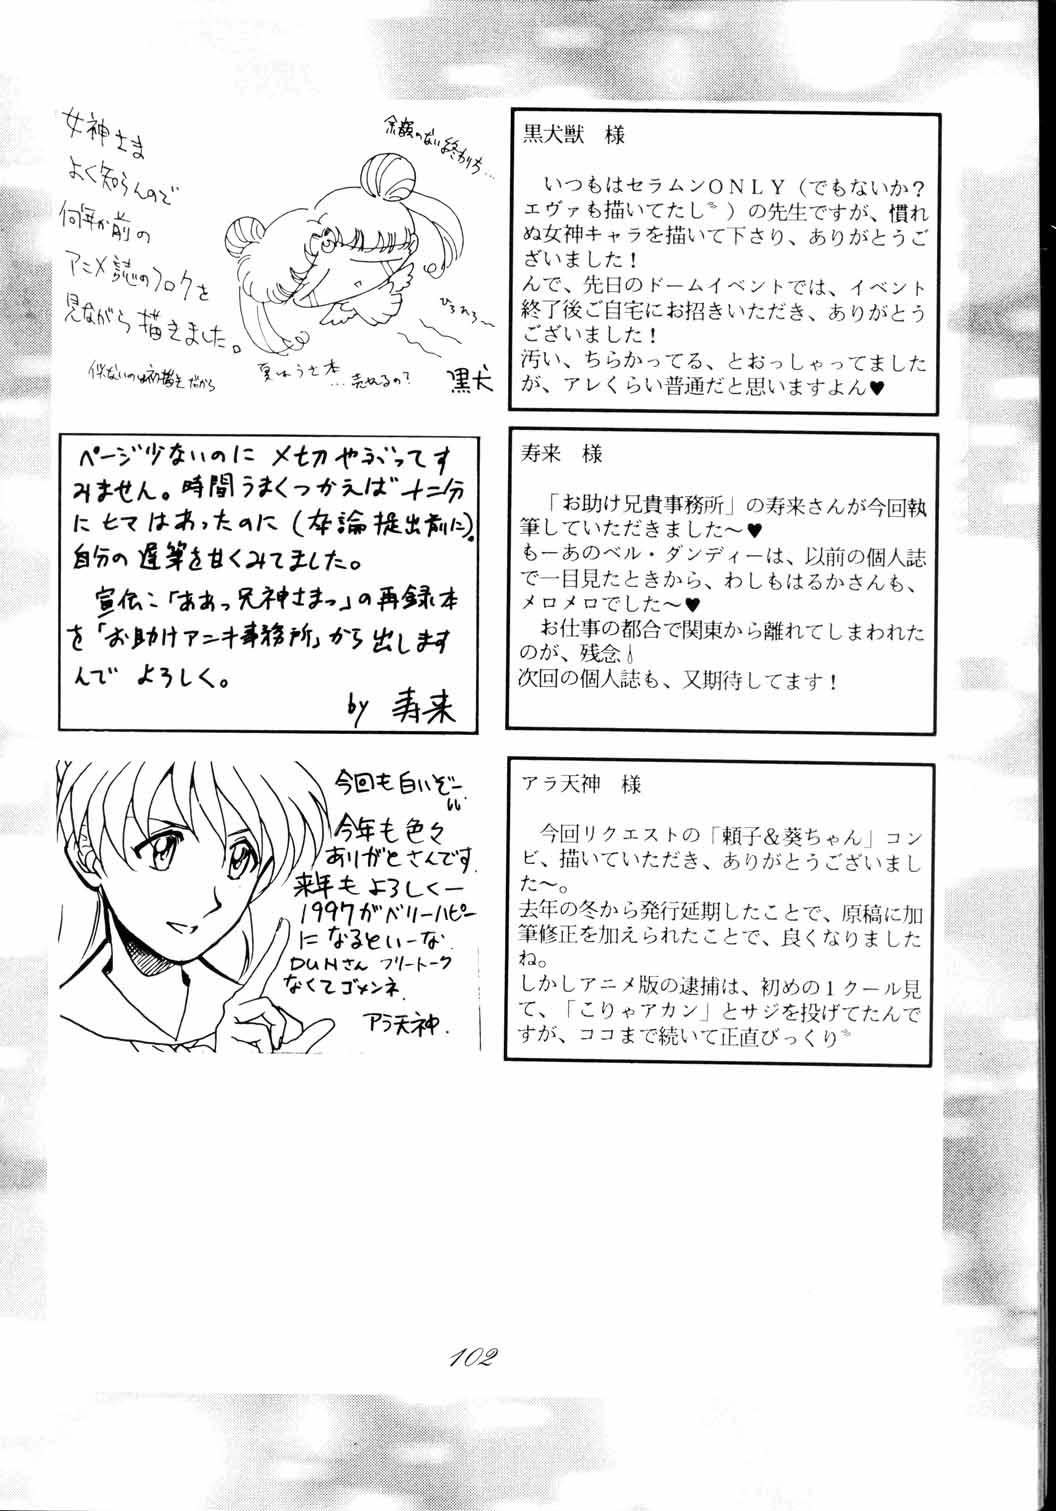 女神さま
よく知らんので
何年か前の
アニメ誌のフロクを
見ながら描きました。
余韻のない終わり方…
ひろろろ〜
似ないのは初描きだから
夏はうさ本
…売れるの?
黒犬
黒犬獣　様
いつもはセラムンONLY(でもないか?
エヴァも描いてたし)の先生ですが、慣れ
ぬ女神キャラを描いて下さり、ありがとうご
ざいました!
んで、先日のドームイベントでは、イベント
終了後ご自宅にお招きいただき、ありがとう
ございました!
汚い、ちらかってる、とおっしゃってました
が、アレくらい普通だと思いますよん♥
ページ少ないのに〆切やぶってす
みません。時間うまくつかえば十二分
にヒマはあったのに(卒論提出前に)。
自分の遅筆を甘くみてました。
宣伝:「ああっ兄神さまっ」の再録本
を「お助けアニキ事務所」から出します
んで よろしく。
by 寿来
寿来　様
「お助け兄貴事務所」の寿来さんが今回執
筆していただきました〜♥
もーあのベル・ダンディーは、以前の個人誌
で一目見たときから、わしもはるかさんも、
メロメロでした〜♥
お仕事の都合で関東から離れてしまわれた
のが、残念
次回の個人誌も、又期待してます!
今回も白いぞー
今年も色々
ありがとさんです
来年もよろしくー
1997がベリーハピー
になるといーな
DUNさん フリートーク
なくてゴメンネ
アラ天神.
アラ天神　様
今回リクエストの「頼子&葵ちゃん」コン
ビ、描いていただき、ありがとうございまし
た〜。
去年の冬から発行延期したことで、原稿に加
筆修正を加えられたことで、良くなりました
ね。
しかしアニメ版の逮捕は、初めの1クール見
て、「こりゃアカン」とサジを投げてたんで
すが、ココまで続いて正直びっくり
102